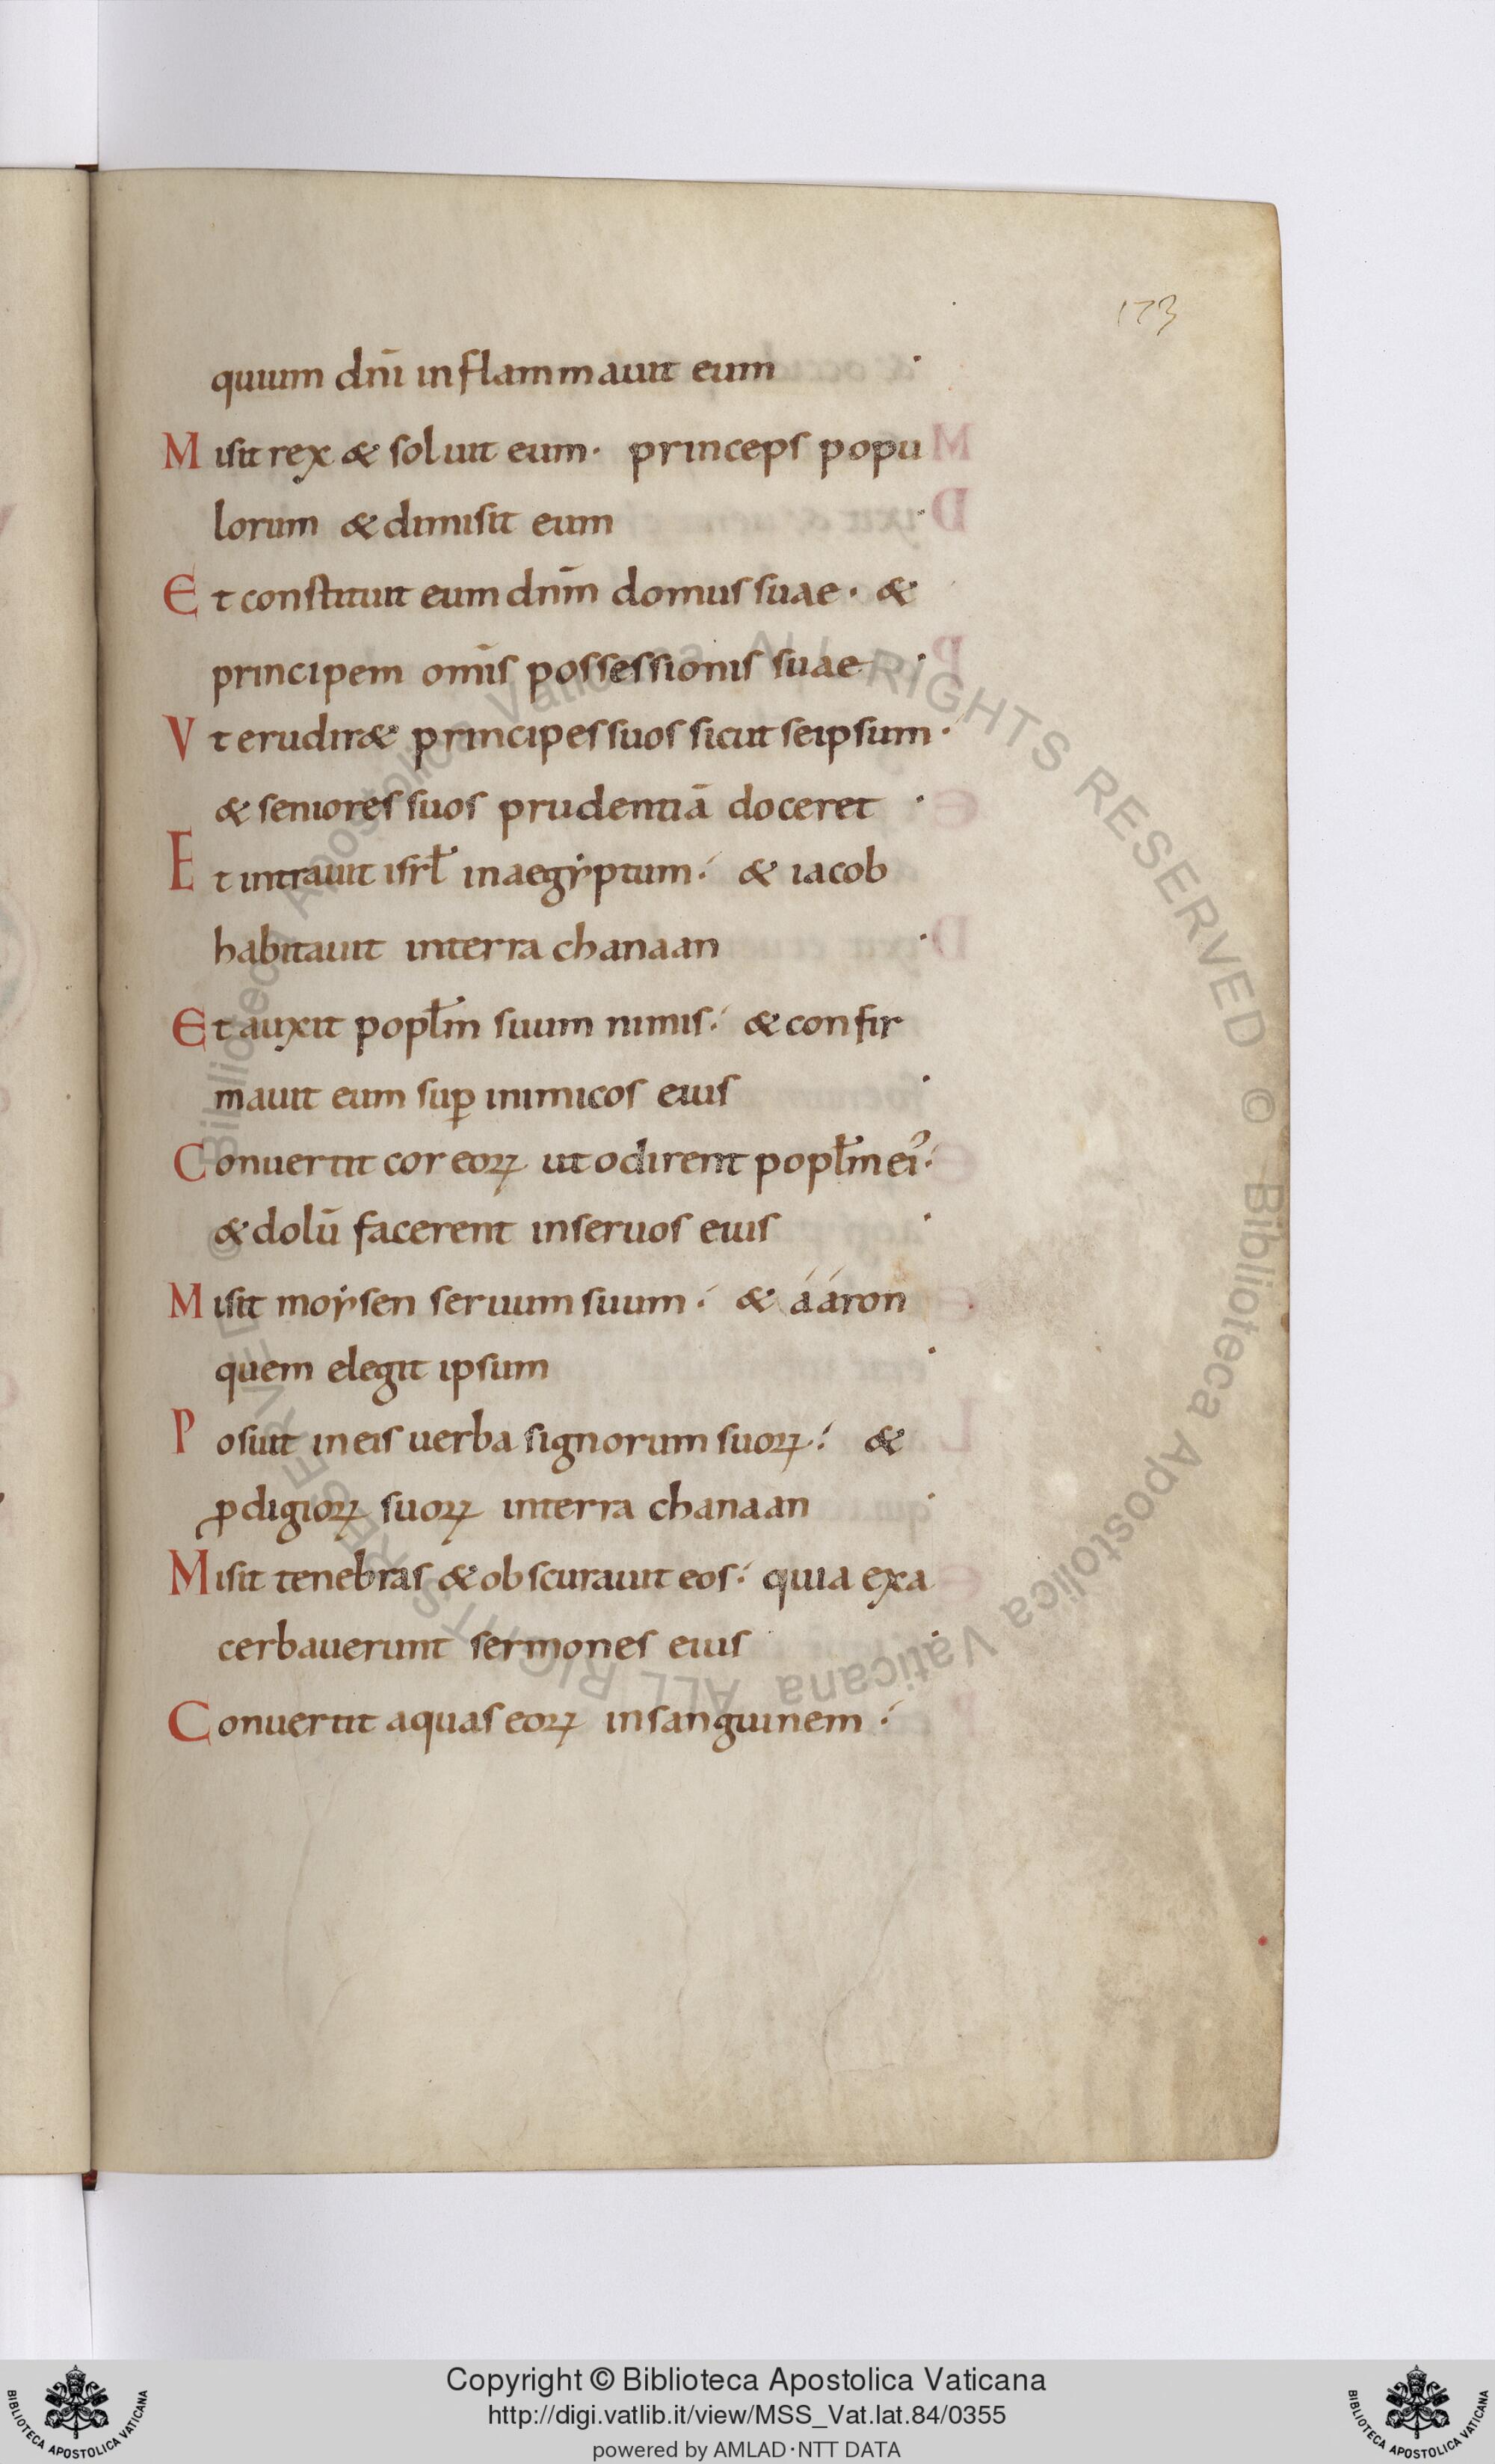 173
quium dn̄i inflammauit eum ·
Misit rex & soluit eum · princeps popu
lorum & dimisit eum ·
Et constituit eum dnm̄ domus suae · &
principem om̄is possessionis suae ·
Vt erudir& principes suos sicut seipsum ·
& seniores suos prudentiā doceret ·
Et intrauit isrł in aegẏptum ·́ & iacob
habitauit in terra chanaan ·
Et auxit popłm suum nimis ·́ & confir
mauit eum suꝑ inimicos eius ·
Conuertit cor eoꝝ ut odirent popłm eiꝰ ·́
& dolū facerent in seruos eius ·
Misit moẏsen seruum suum ·́ & ááron
quem elegit ipsum ·
Posuit in eis uerba signorum suoꝝ ·́ &
ꝓdigioꝝ suoꝝ in terra chanaan ·
Misit tenebras & obscurauit eos ·́ quia exa
cerbauerunt sermones eius ·
Conuertit aquas eoꝝ in sanguinem ·́
© Biblioteca Apostolica Vaticana ALL RIGHTS RESERVED © Biblioteca Apostolica Vaticana ALL RIGHTS RESERVED
Copyright © Biblioteca Apostolica Vaticana
http://digi.vatlib.it/view/MSS_Vat.lat.84/0355
powered by AMLAD·NTT DATA
BIBLIOTECA APOSTOLICA VATICANA
BIBLIOTECA APOSTOLICA VATICANA